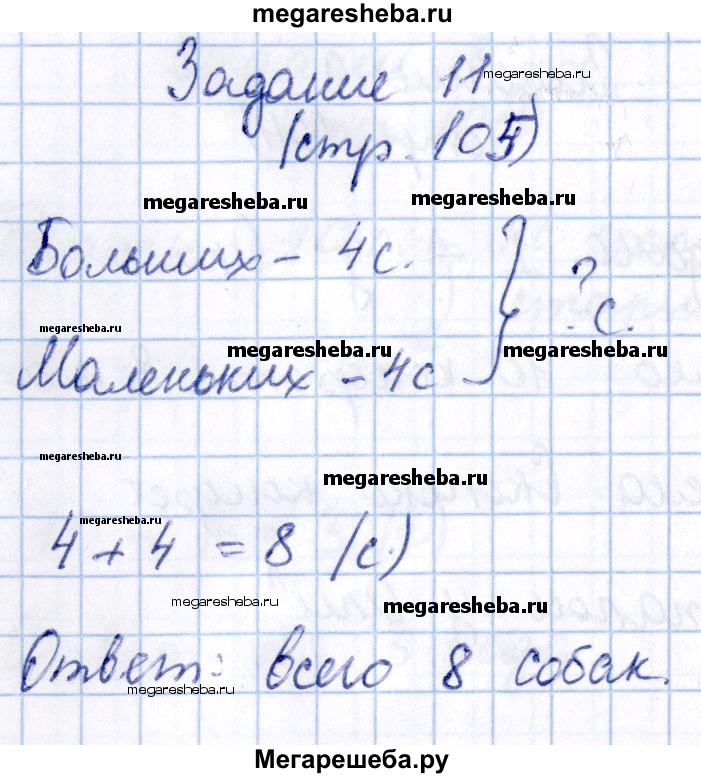 megaresheba.ru
Задание 11
megaresheba.ru
(стр. 105)
megaresheba.ru
megaresheba.ru
Больших - 4 с.
? с.
megaresheba.ru
megaresheba.ru
megaresheba.ru
Маленьких - 4 с
megaresheba.ru
megaresheba.ru
megaresheba.ru
4 + 4 = 8 (с.)
megaresheba.ru
megaresheba.ru
Ответ: всего 8 собак.
megaresheba.ru
Мегарешеба.ру